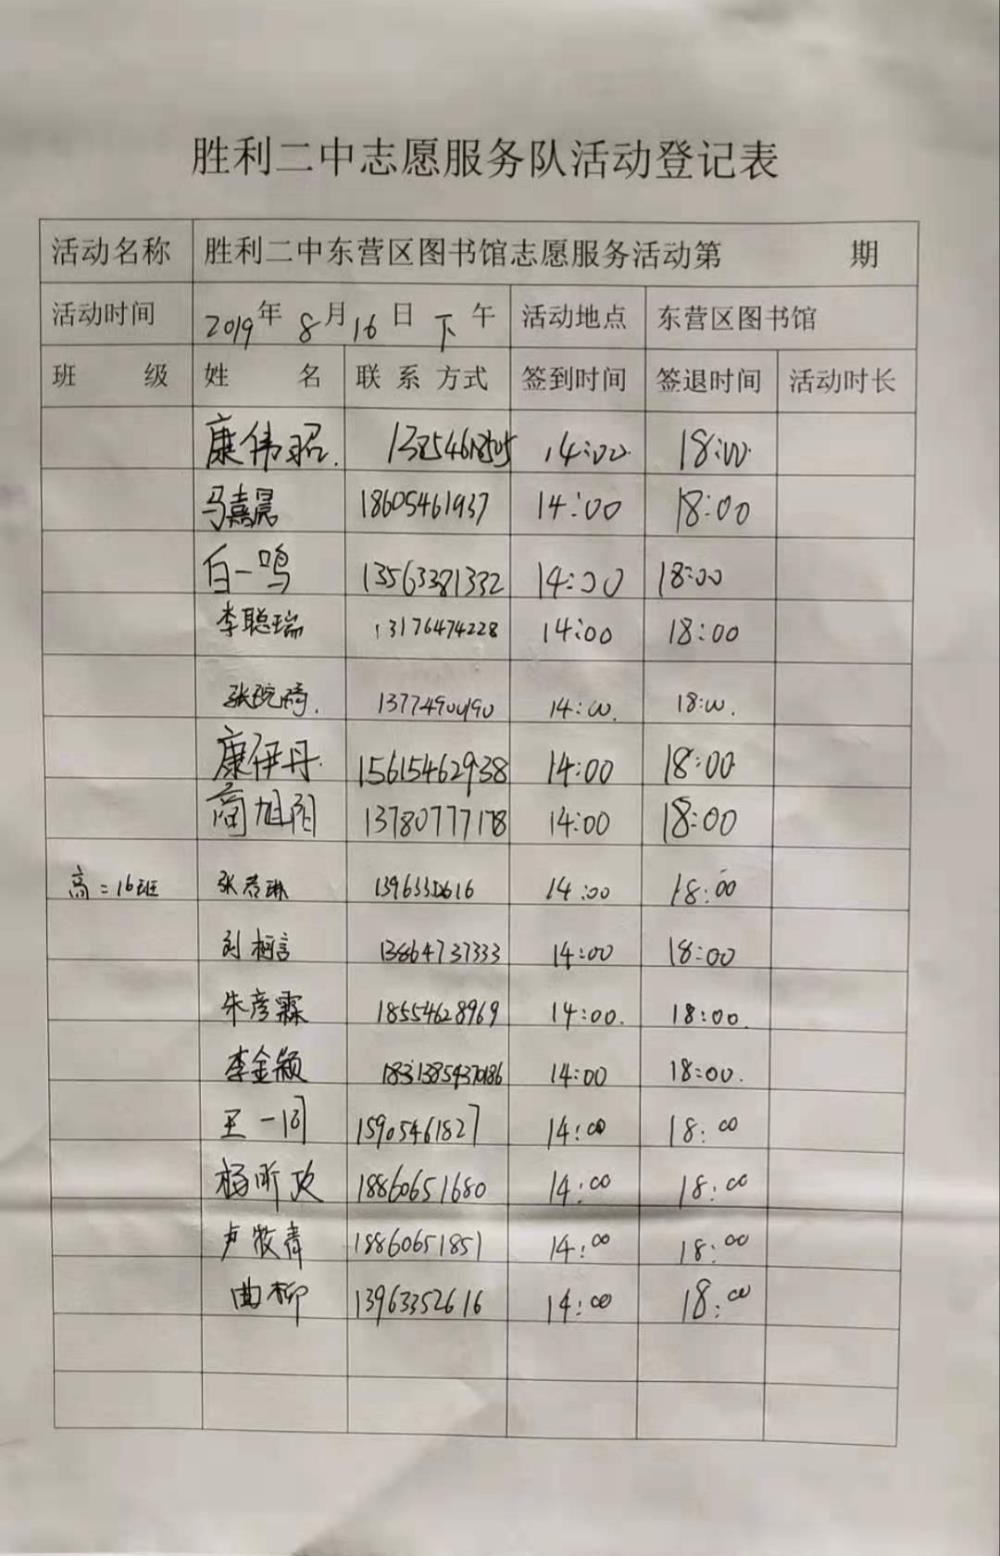 胜利二中志愿服务队活动登记表
活动名称 胜利二中东营区图书馆志愿服务活动第 期
活动时间 2019年 8月16日 下午 活动地点 东营区图书馆
班 级 姓 名 联 系 方式 签到时间 签退时间 活动时长
康伟昭. 14:00 18:00
马嘉晨 18605461937 14:00 18:00
白一鸣 13563381332 14:00 18:00
李聪瑞 13176474228 14:00 18:00
14:00. 18:00.
康伊丹. 15615462938 14:00 18:00
商旭阳 13780777178 14:00 18:00
高二16班 张君琳 14:00 18:00
刘柯言 13864737333 14:00 18:00
朱彦霖 18554628969 14:00. 18:00.
李金颖 14:00 18:00.
王一同 15905461827 14:00 18:00
杨昕玫 18860651680 14:00 18:00
卢牧青 18860651851 14:00 18:00
曲柳 13963352616 14:00 18:00